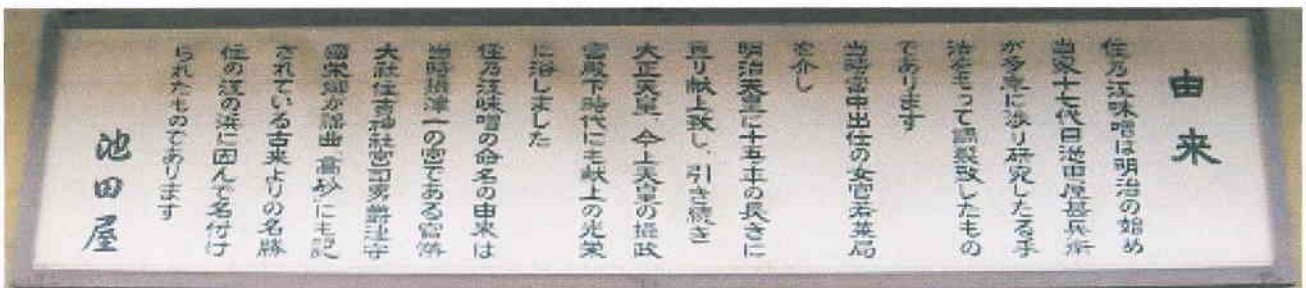 由来
住乃江味噌は明治の始め
当家十七代目池田屋甚兵衛
が多年に渉り研究したる手
法をもって調製致したもの
であります
当時宮中出仕の女官若菜局
を介し
明治天皇に十五年の長きに
亘り献上致し、引き続き
大正天皇、今上天皇の摂政
宮殿下時代にも献上の光栄
に浴しました
住乃江味噌の命名の由来は
当時摂津一の宮である官幣
大社住吉神社宮司男爵津守
國栄卿が謡曲「高砂」にも記
されている古来よりの名勝
住の江の浜に因んで名付け
られたものであります
池田屋